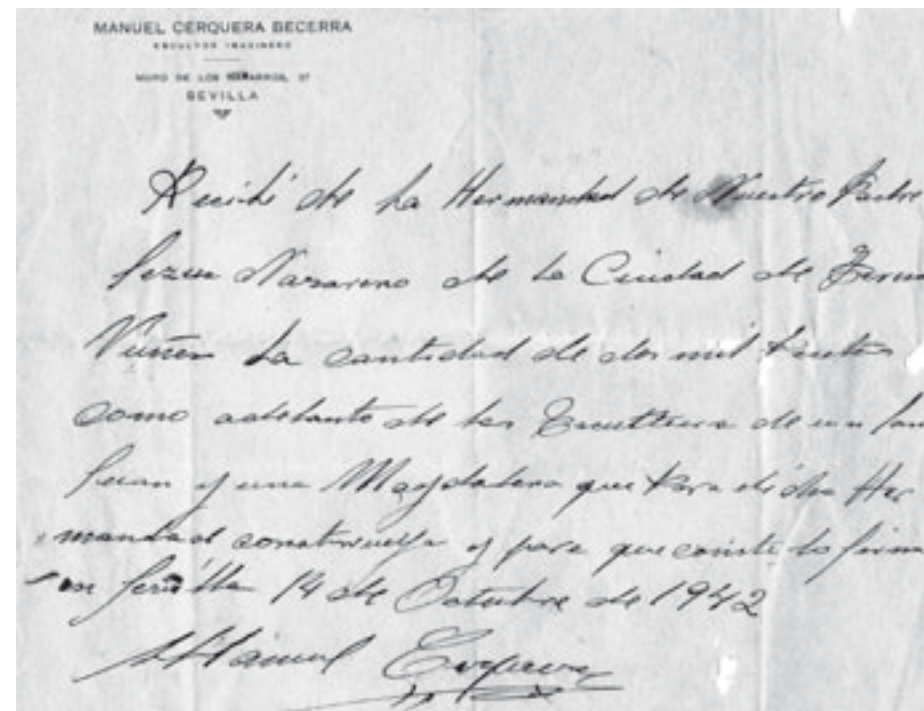 MANUEL CERQUERA BECERRA
ESCULTOR IMAGINERO
MURO DE LOS NAVARROS, 37
SEVILLA
Recibí de la Hermandad de Nuestro Padre
Jezus Nazareno de la Ciudad de
La cantidad de dos mil
como adelanto de las de un San
Juan y una Magdalena que para dicha Her
mandad construyo y para que conste lo firmo
en Sevilla 14 de Octubre de 1942
Manuel Cerquera